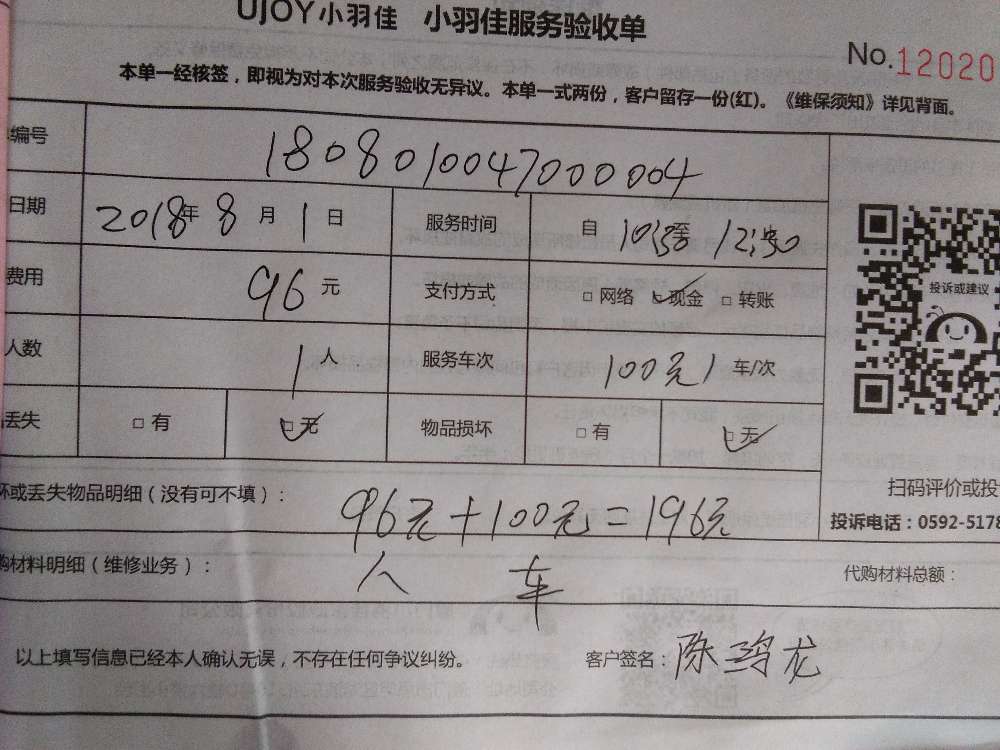 UJOY小羽佳 小羽佳服务验收单
No.12020
本单一经核签，即视为对本次服务验收无异议。本单一式两份，客户留存一份(红)。《维保须知》详见背面。
编号 1808010047000004
日期 2018年8月1日 服务时间 自 至 12:30
费用 96元 支付方式 □网络 现金 □转账
人数 1人 服务车次 100元1车/次
丢失 □有 □无 物品损坏 □有 □无
投诉或建议
扫码评价或投
投诉电话：0592-5178
坏或丢失物品明细（没有可不填）：
96元+100元=196元
人 车
购材料明细（维修业务）： 代购材料总额：
以上填写信息已经本人确认无误，不存在任何争议纠纷。 客户签名：陈 龙